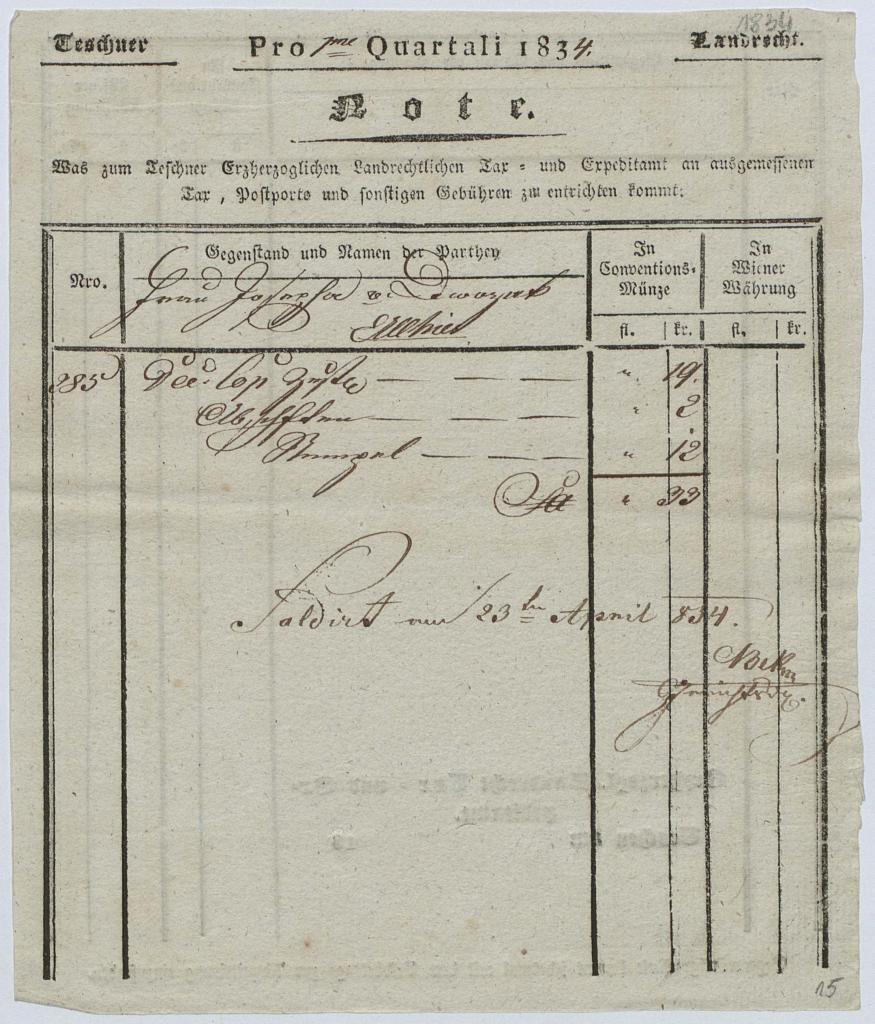 1834
Teschner Pro 1me Quartali 1834. Landrecht.
Note.
Was zum Teschner Erzherzoglichen Landrechtlichen Tax- und Expeditamt an ausgemessenen
Tax, Postporto und sonstigen Gebühren zu entrichten kommt:
Nro. Gegenstand und Namen der Parthey In Conventions-Münze In Wiener Währung
Frau Josepha v.
Allhier
fl. kr. fl. kr.
285 Dec. Cop " 19.
" 2
Stempel " 12
Sa " 33
Saldirt am 23ten April 834.
15